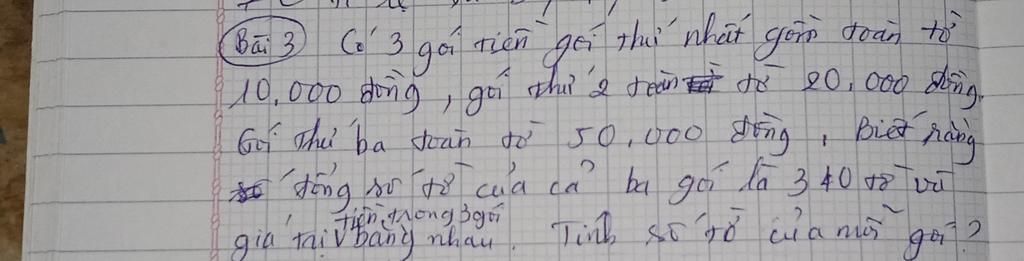 Bài 3 Có 3 gói tiền gói thứ nhất gồm toàn tờ
10,000 đồng, gói thứ 2 toàn tờ 20,000 đồng.
Gói thứ ba toàn tờ 50,000 đồng, Biết rằng
tổng số tờ của cả ba gói là 340 tờ và
giá trị tiền trong 3 gói bằng nhau. Tính số tờ của mỗi gói?